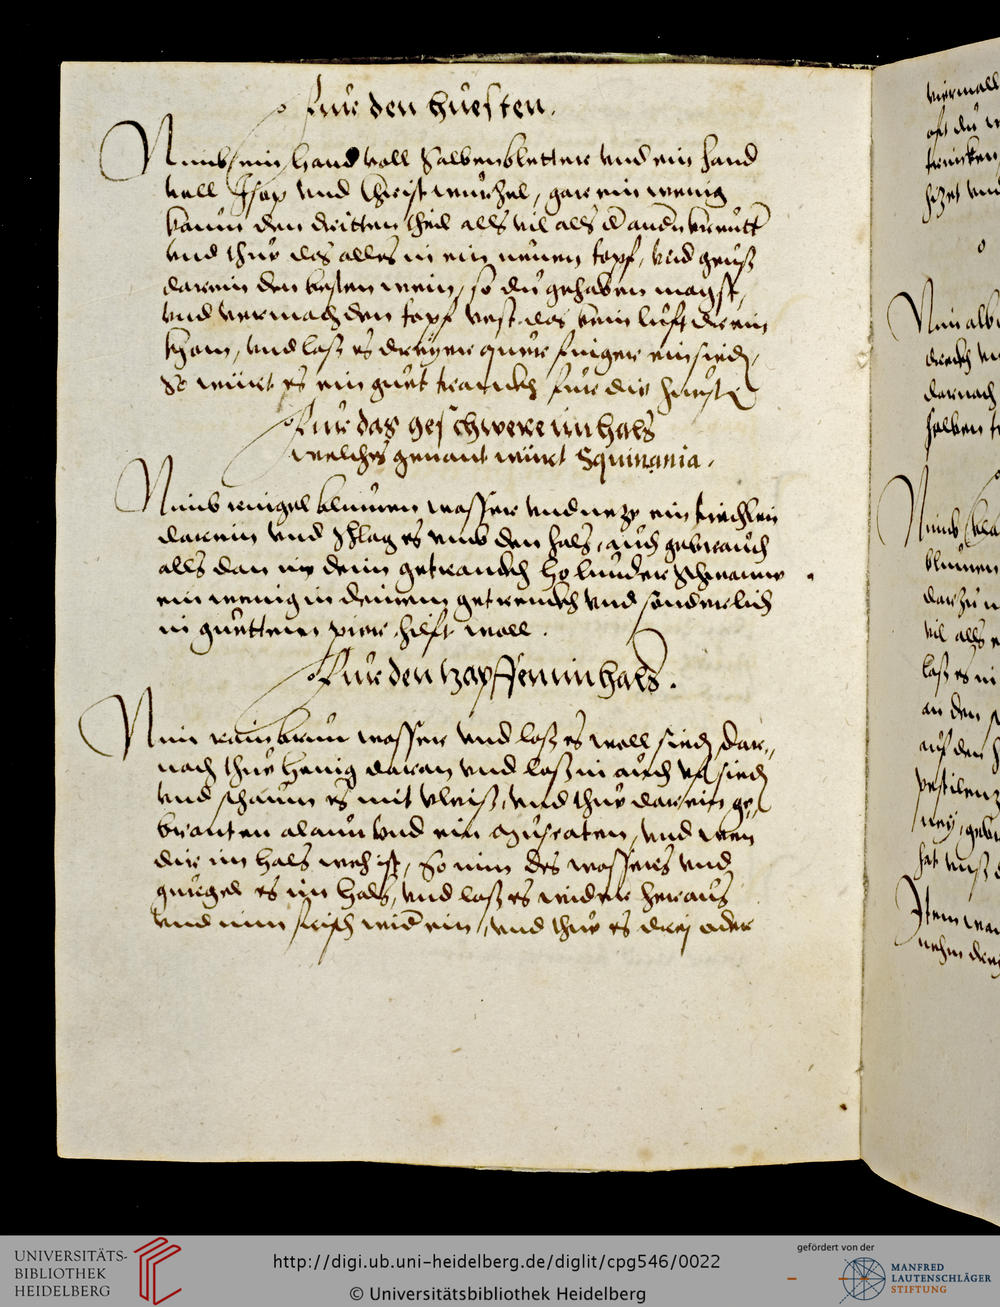 Fur den huesten.
Nimb ein Hand voll Salbenbletter vnd ein hand
voll Isop vnd Christwurzel, gar ein wenig
kaum den dritten theil alls vil als d andn kreutt
vnd thue das alles in ein neuen topf, vnd geuß
darein den besten wein, so du gehaben magst,
vnd vermach den topf vest das kein luft darein
khom, vnd laß es dreyer quer finger einsieden,
So wirt es ein guet tranckh fur die huesten
Fur das geschwere im hals
welches genant wirt Squinania.
Nimb ringel blumen wasser vnd neze ein tiechlein
darein vnd schlag es vmb den hals, auch gebrauch
alls dan in dein getranckh holunder schwamme
ein wenig in deinem getrenckh vnd sonderlich
in guettem pier hilft woll.
Fur den zapffen im hals.
Nim rain brun wasser vnd laß es woll sieden dar„
nach thue Honig daran vnd laß in auch
vnd schaum es mit vleiß, vnd thue darein ge„
branten alaun vnd ein muscaten, vnd wen
dir im hals weh ist, So nim des wassers vnd
gurgel es im hals, vnd laß es wider heraus
vnd nim frisch wid ein, vnd thue es drej oder
viermall
oft du
trincken
hizet vnd
Nim alb
dreckh
darnach
halben
Nimb
blumen
darzu
vil alls
laß es in
an den
auf den
pestilenz
ney, geb
hat
Item
nehm
UNIVERSITÄTS-
BIBLIOTHEK
HEIDELBERG
http://digi.ub.uni-heidelberg.de/diglit/cpg546/0022
© Universitätsbibliothek Heidelberg
gefördert von der
MANFRED
LAUTENSCHLÄGER
STIFTUNG